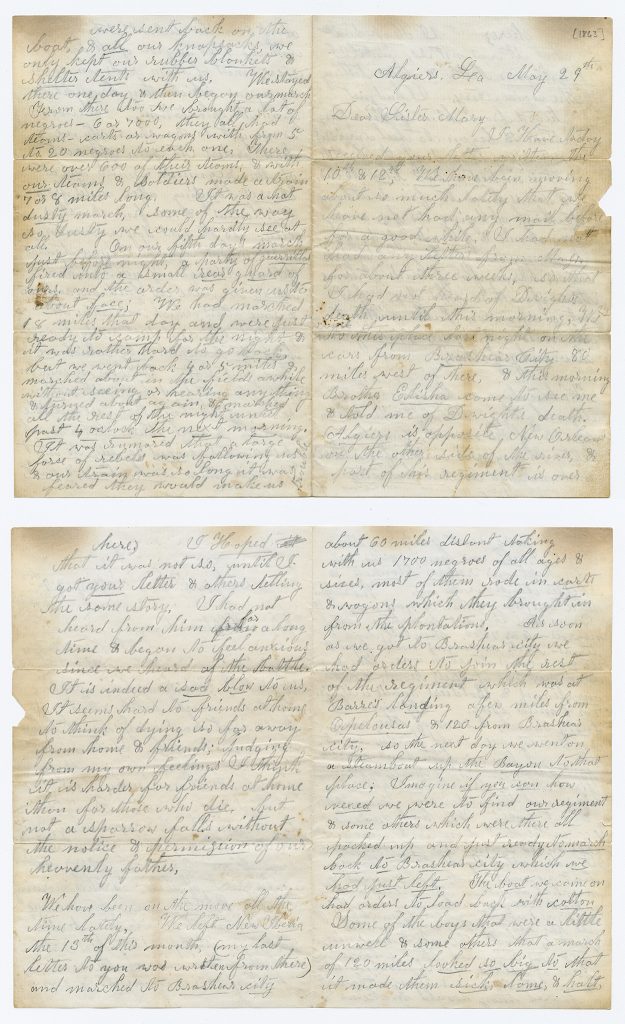 [1863]
Algiers, La May 29th
Dear Sister Mary
I Have today
received your letter written the
10th & 12th. We have been moving
about so much lately that we
have not had any mail before
for a good while. I had not
had any letter from
for about three weeks, so that
I had not heard of Dwights
death until this morning. We
to this place last night on the
cars from Brashear City 80
miles west of there, & this morning
Broth Elisha came to see me
& told me of Dwights death.
Algiers is opposite New Orleans
on the other side of the river, &
part of this regiment is over
here, I Hoped
that it was not so, until I
got your letter & others telling
the same story. I had not
heard from him for a long
time & began to feel anxious
since we heard of the battle.
It is indeed a sad blow to us,
It seems hard to friends at home
to think of dying so far away
from home & friends; judging
from my own feelings I think
it is harder for friends at home
then for those who die, but
not a sparrow falls without
the notice & permission of our
heavenly father.
We have been on the move all the
time lately, We left New Iberia
the 13th of this month, (my last
letter to you was written from there)
and marched to Brashear city
about 60 miles distant taking
with us 1700 negroes of all ages &
sizes, most of them rode in carts
& wagons which they brought in
from the plantations. As soon
as we got to Brashear city we
had orders to join the rest
of the regiment which was at
Barres Landing a few miles from
Opelousas & 120 from Brashear
city, so the next day we went on
a steamboat up the Bayou to that
place; Imagine if you can how
vexed we were to find our regiment
& some others which were there all
packed up and just ready to march
back to Brashear city which we
had just left. The boat we came on
had orders to load up with cotton
Some of the boys that were a little
unwell & some others that a march
of 120 miles looked so big to that
it made them sick, lame, & halt,
were sent back on the
boat, & all our knapsacks, we
only kept our rubber blankets &
shelter tents with us. We stayed
there one day & then began our march
From there too we brought a lot of
negroes - 6 or 7000. they all had
teams - carts or wagons with from 5
to 20 negroes to each one. There
were over 600 of their teams, & with
our teams & soldiers made a train
7 or 8 miles long. It was a hot
dusty march, & some of the way
so dusty we could hardly see at
all. On our fifth day's march
just before night, a party of guerrillas
fired into a small rear guard of
ours, and the order was given us to
about face; We had marched
18 miles that day and were just
ready to camp for the night &
it was rather hard to go back,
but we went back 4 or 5 miles &
marched about in the fields awhile
without seeing or hearing any thing
& turned about again, & marched
all the rest of the night until
past 4 oclock the next morning.
It was rumored that a large
force of rebels was following us
& our train was so long it was
feared they would make us